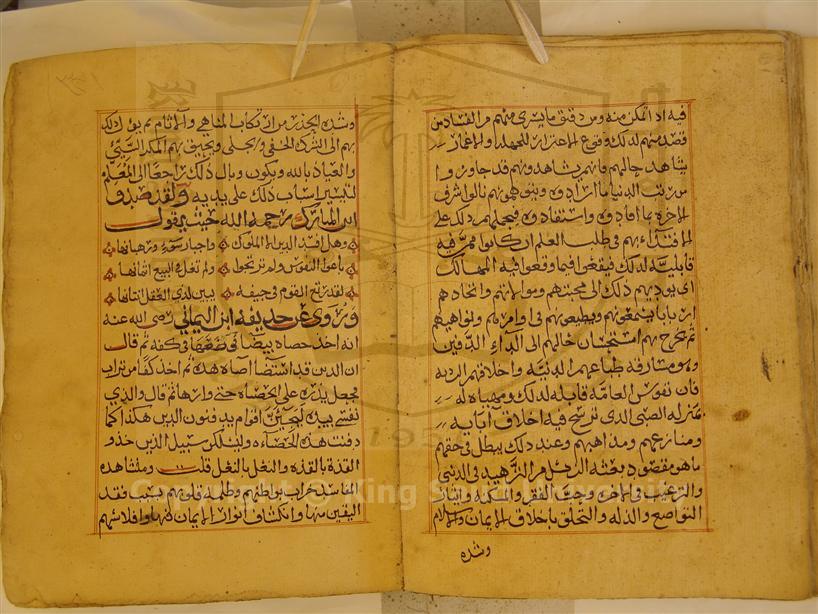 فيه اذا تمكن منه ومن دقيق ما يسرى منهم من الفساد من
قصد منهم لذلك وقوع الاغترار للجهلة والاغمار
بمشاهدة حالهم فانهم يشاهدونهم قد جاوزوا
من رتب الدنيا ما ارادوه ويتوهمونهم نالوا شرف
الاخرة بما افادوه واستفادوه فيحملهم ذلك على
الاقتداء بهم في طلب العلم ان كانوا ممن فيه
قابلية لذلك فيقعوا فيما وقعوا فيه المهالك
او يوديهم ذلك الى محبتهم وموالاتهم واتخاذهم
اربابا يتبعونهم ويطيعونهم في اوامرهم ونواهيهم
ثم يخرج بهم استحسان حالهم الى الداء الدفين
وهو مسارقة طباعهم الدنية واخلاقهم الردية
فان نفوس العامة قابلة لذلك ومهياة له
بمنزلة الصبي الذي ترسخ فيه اخلاق ابايه
ومنازعهم ومذاهبهم وعند ذلك يبطل في حقهم
ما هو مقصود بعثة الرسل من التزهيد في الدنيا
والترغيب في الاخرة ومحبة الفقر والمسكنة وايثار
التواضع والذلة والتخلق باخلاق الايمان والاسلام
وشدة
وشدة الحذر من ارتكاب المناهي والاثام ثم يؤل ذلك
بهم الى الشرك الخفي والجلي ويحيق بهم المكر السيئ
والعياذ بالله ويكون وبال ذلك راجعا الى المعلم
لتيسير اسباب ذلك على يديه ولقد صدق
ابن المبارك رحمه الله حيث يقول
وهل افسد الدين الا الملوك واحبار سوء ورهبانها
باعوا النفوس ولم تربحوا ولم تغل في البيع اثمانها
لقد رتع القوم في جيفة يبين لذي العقل انتانها
وروى عن حذيفة ابن اليماني رضي الله عنه
انه اخذ حصاه بيضا فوضعها في كفه ثم قال
ان الدين قد استضا اضاه هذه ثم اخذ كفا من تراب
فجعل يذره على الحصاه حتى واراها ثم قال والذي
نفسي بيده ليجيئن اقوام يدفنون الدين هكذا كما
دفنت هذه الحصاه وليسلكن سبيل الذين خلو
القذة بالقذة والنعل بالنعل قلت ومشاهدة
المفاسد خراب بواطنهم وظلمة قلوبهم بسبب فقد
اليقين منها وانكشاف انوار الايمان عنها وافلاسهم
Copyright © King Saud University
195